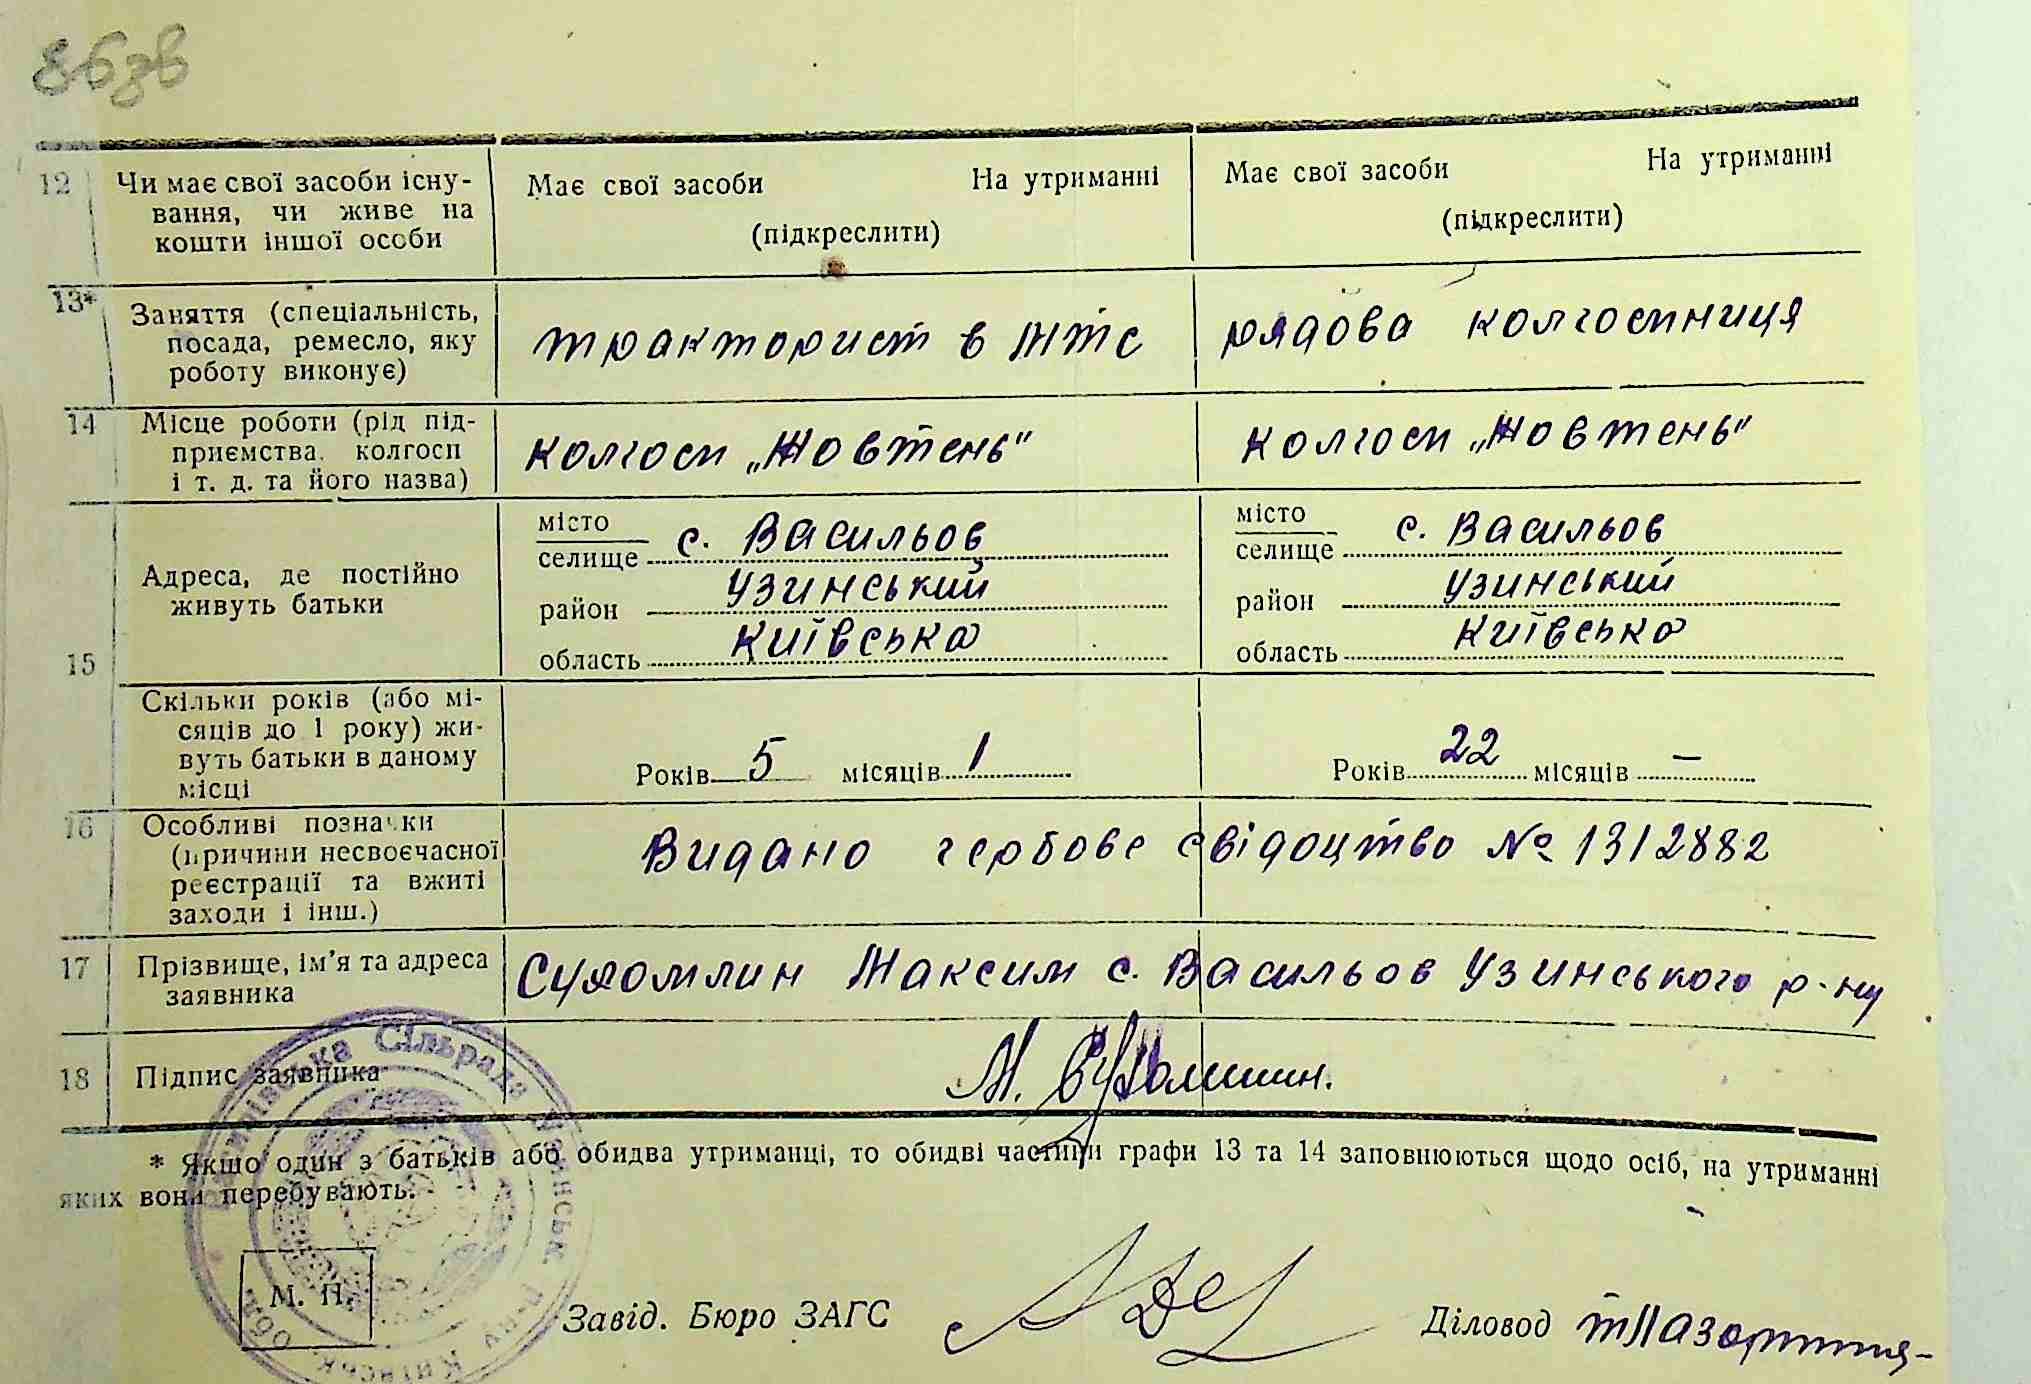 12 Чи має свої засоби існу-
вання, чи живе на
кошти іншої особи
Має свої засоби На утриманні
(підкреслити)
Має свої засоби На утриманні
(підкреслити)
13* Заняття (спеціальність,
посада, ремесло, яку
роботу виконує)
тракторист в МТС
рядова колгоспниця
14 Місце роботи (рід під-
приємства, колгосп
і т. д. та його назва)
колгосп „Жовтень"
колгосп „Жовтень"
15
Адреса, де постійно
живуть батьки
місто
селище с. Васильов
район Узинський
область Київська
місто
селище с. Васильов
район Узинський
область Київська
Скільки років (або мі-
сяців до 1 року) жи-
вуть батьки в даному
місці
Років 5 місяців 1
Років 22 місяців —
16 Особливі позначки
(причини несвоєчасної
реєстрації та вжиті
заходи і інш.)
Видано гербове свідоцтво № 1312882
17 Прізвище, ім'я та адреса
заявника
Сухомлин Максим с. Васильов Узинського р-ну
18 Підпис заявника
М. Сухомлин.
* Якщо один з батьків або обидва утриманці, то обидві частини графи 13 та 14 заповнюються щодо осіб, на утриманні
яких вони перебувають.
Сільрада
М. П.
Завід. Бюро ЗАГС
Діловод